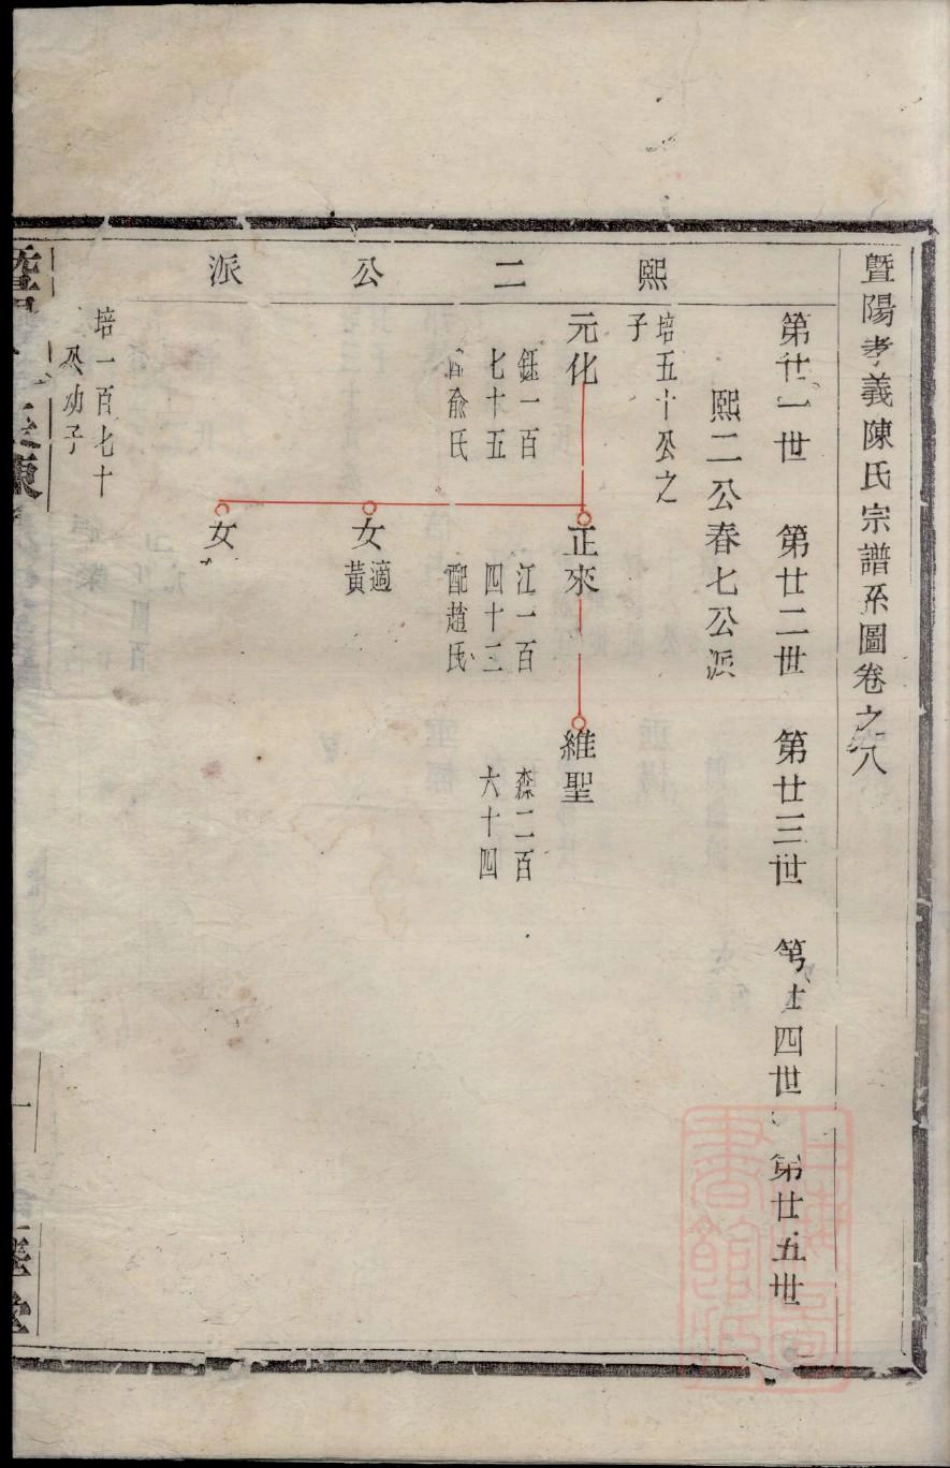 暨陽孝義陳氏宗譜系圖卷之八
熙二公派
第廿一世 第廿二世 第廿三世 第廿四世 第廿五世
熙二公春七公派
培五十公之
子
元化
鈺一百
七十五
配俞氏
正來
江一百
四十三
配趙氏
維聖
森二百
六十四
女
適
黃
女
培一百七十
公幼子